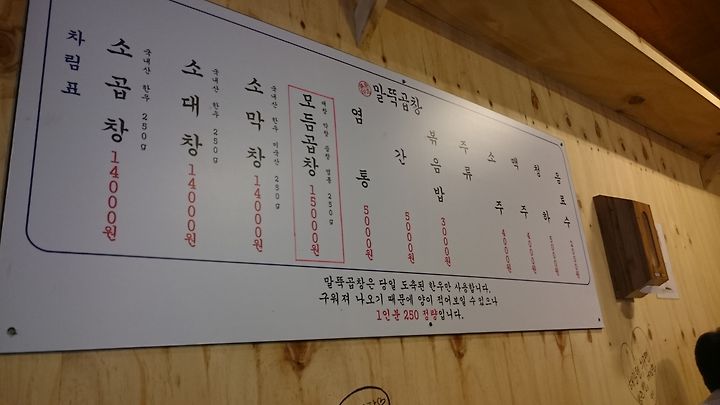 차림표
소곱창
국내산 한우 250g
14000원
소대창
국내산 한우 250g
14000원
소막창
국내산 한우 미국산 250g
14000원
모듬곱창
대창 막창 곱창 염통 250g
15000원
말뚝곱창
염통
5000원
간
5000원
볶음밥
3000원
주류
소주
4000원
맥주
4000원
청하
5000원
음료수
말뚝곱창은 당일 도축된 한우만 사용합니다.
구워져 나오기 때문에 양이 적어보일 수 있으나
1인분 250 정량입니다.